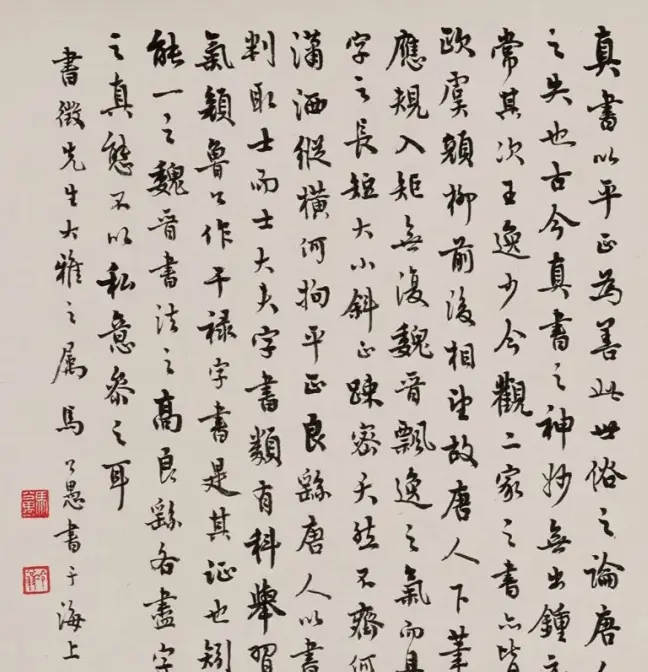 真書以平正為善此世俗之論唐
之失也古今真書之神妙無出鍾元
常其次王逸少今觀二家之書亦皆
歐虞顏柳前後相望故唐人下筆
應規入矩無復魏晉飄逸之氣而且
字之長短大小斜正踈密天然不齊何
瀟洒縱橫何拘平正良繇唐人以書
判取士而士大夫字書類有科舉習
氣顏魯公作干祿字書是其証也矧
能一之魏晉書法之高良繇各盡字
之真態不以私意參之耳
書徵先生大雅之属馬公愚書于海上